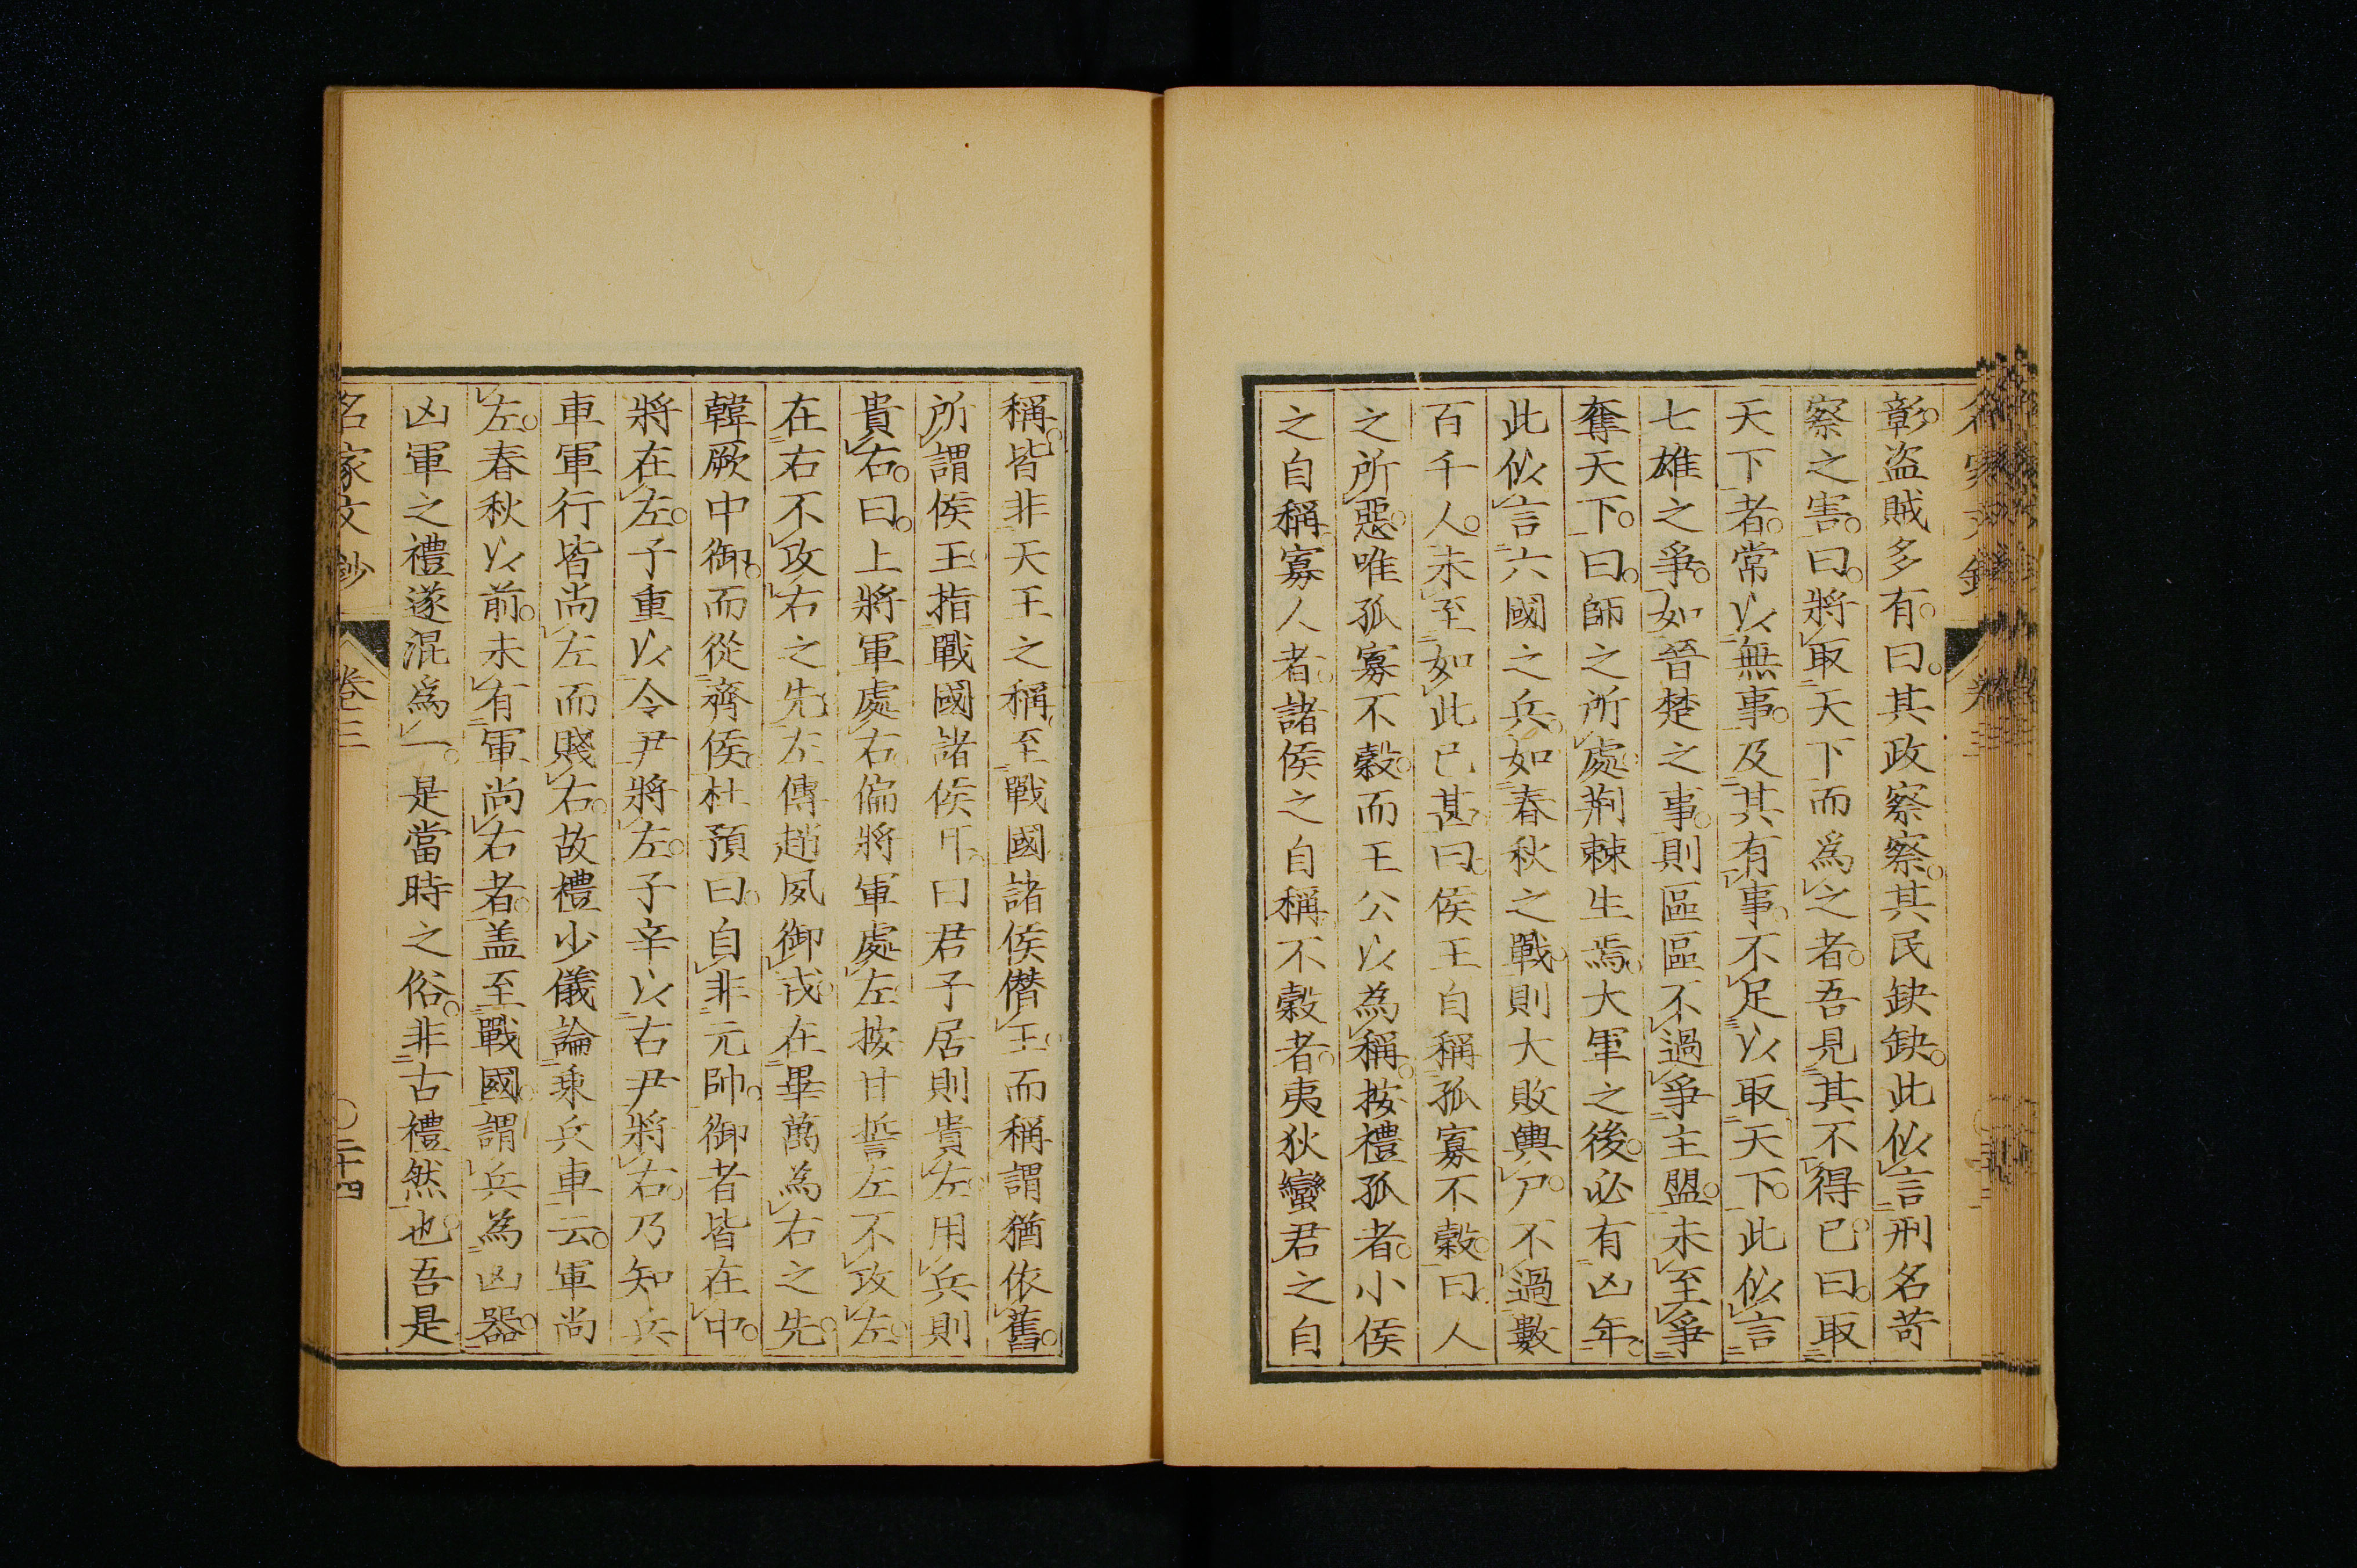 彰。盜賊多有。曰。其政察察。其民缺缺。此似言刑名苛
察之害。曰。將取天下而爲之者。吾見其不得已。曰。取
天下者。常以無事。及其有事。不足以取天下。此似言
七雄之爭。如晉楚之事。則區區不過爭主盟。未至爭
奪天下。曰。師之所處。荆棘生焉。大軍之後。必有凶年。
此似言六國之兵。如春秋之戰。則大敗輿尸。不過數
百千人。未至如此已甚。曰。侯王自稱孤寡不穀。曰。人
之所惡。唯孤寡不穀。而王公以爲稱。按禮孤者。小侯
之自稱。寡人者。諸侯之自稱。不穀者。夷狄蠻君之自
稱。皆非天王之稱。至戰國諸侯僭王。而稱謂猶依舊。
所謂侯王。指戰國諸侯耳。曰君子居則貴左。用兵則
貴右。曰。上將軍處右。偏將軍處左。按甘誓左不攻左。
在右不攻右之先。左傳趙夙御戎。在畢萬爲右之先。
韓厥中御。而從齊侯。杜預曰。自非元帥。御者皆在中。
將在左。子重以令尹將左。子辛以右尹將右。乃知兵
車軍行皆尚左而賤右。故禮少儀論乘兵車云。軍尚
左。春秋以前。未有軍尚右者。盖至戰國。謂兵爲凶器。
凶軍之禮遂混爲一。是當時之俗。非古禮然也。吾是
名家文鈔
卷三
二十四